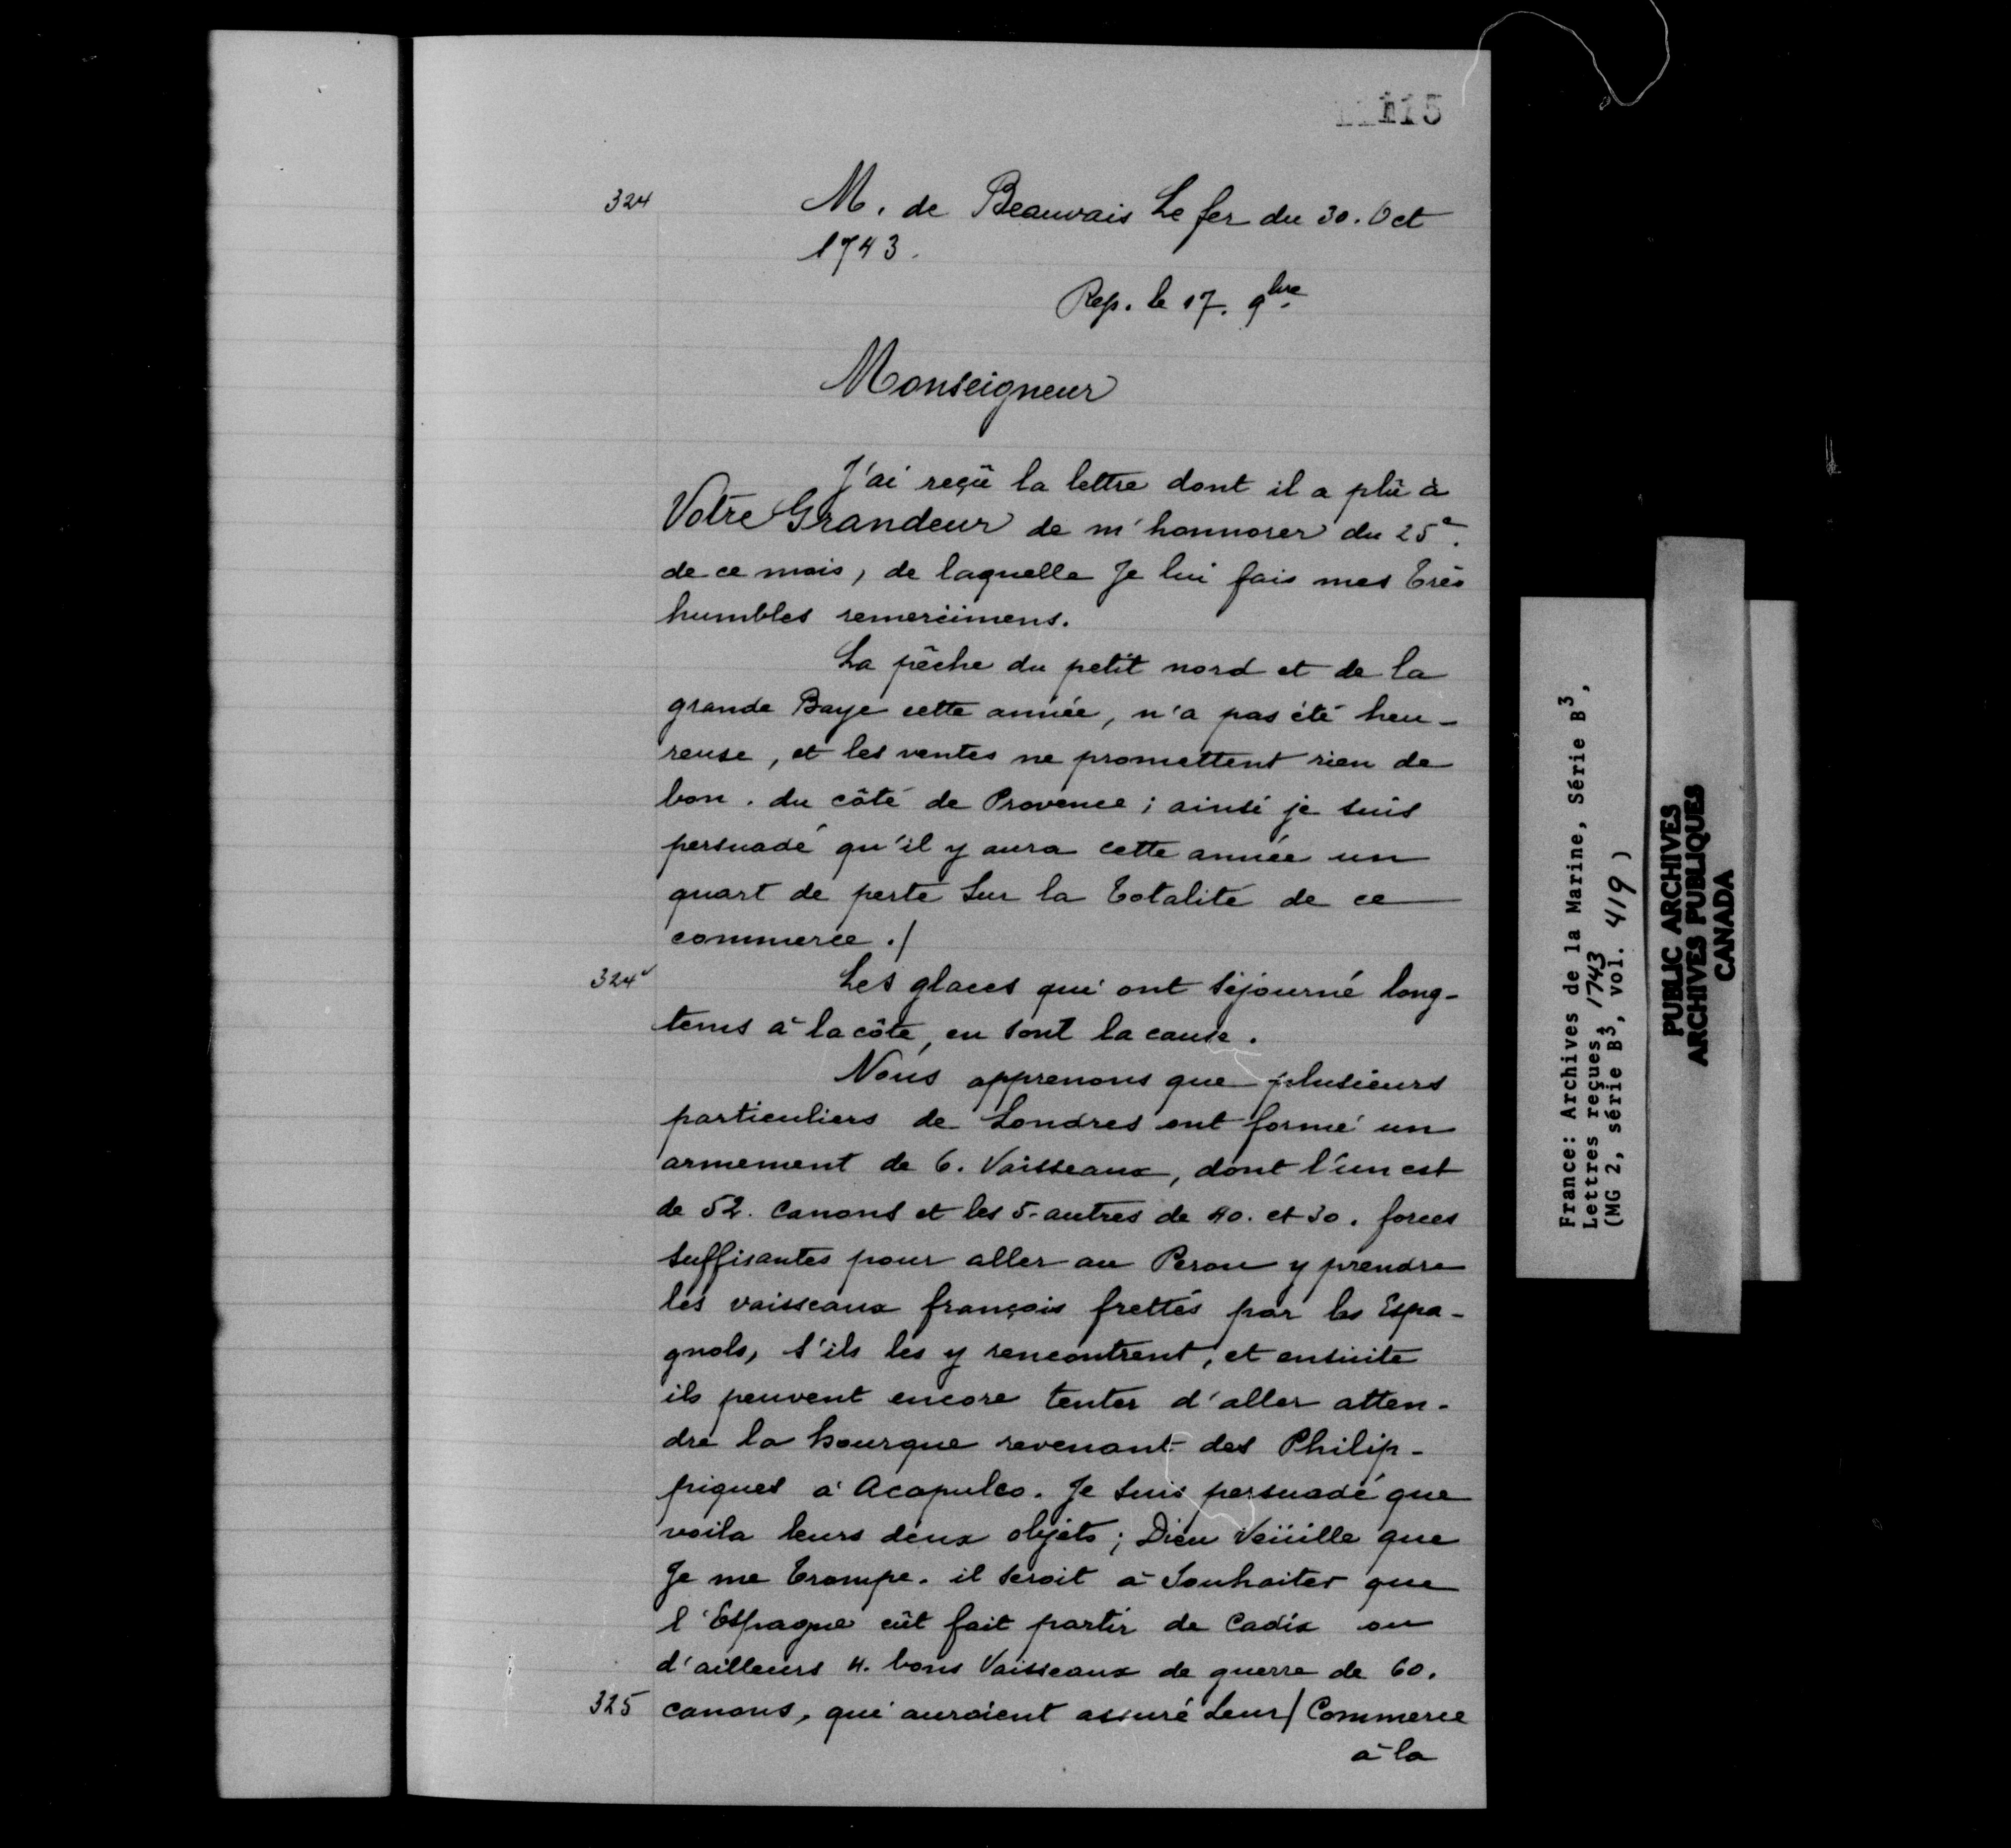 115
324 M. de Beauvais Le fer du 30. Oct
1743.
Rep. le 17. 9bre
Monseigneur
J'ai reçû la lettre dont il a plû à
Votre Grandeur de m'honnorer du 25e.
de ce mois, de laquelle Je lui fais mes très
humbles remerciimens.
La pêche du petit nord et de la
grande Baye cette année, n'a pas été heu-
reuse, et les ventes ne promettent rien de
bon. du côté de Provence; ainsi je suis
persuadé qu'il y aura cette année un
quart de perte sur la totalité de ce
commerce./
324v Les glaces qui ont séjourné long-
tems à la côte, en sont la cause.
Nous apprenons que plusieurs
particuliers de Londres ont formé un
armement de 6. Vaisseaux, dont l'un est
de 52. Canons et les 5. autres de 40. et 30. forces
suffisantes pour aller au Perou y prendre
les vaisseaux françois frettés par les Espa-
gnols, s'ils les y rencontrent, et ensuite
ils peuvent encore tenter d'aller atten-
dre la hourque revenant des Philip-
piques à Acapulco. Je suis persuadé que
voila leurs deux objets; Dieu Veüille que
Je me trompe. il seroit à Souhaiter que
l'Espagne eût fait partir de Cadix ou
d'ailleurs 4. bons Vaisseaux de guerre de 60.
325 canons, qui auroient assuré leur/Commerce
à la
France: Archives de la Marine, Série B3,
Lettres reçues, 1743
(MG 2, série B3, vol. 419)
PUBLIC ARCHIVES
ARCHIVES PUBLIQUES
CANADA